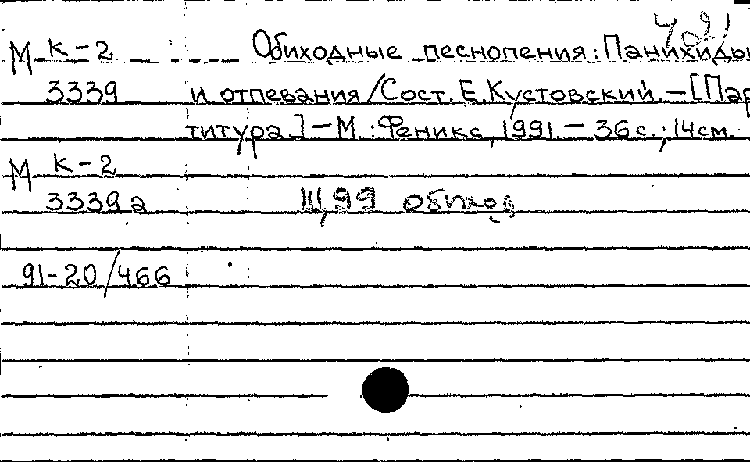 М К-2 Обиходные песнопения: Панихиды
3339 и отпевания / Сост. Е. Кустовский. – [Пар
титура.] – М.: Феникс, 1991 – 36 с.; 14 см.
М К-2
3339 а III,99 обиход
91-20/466